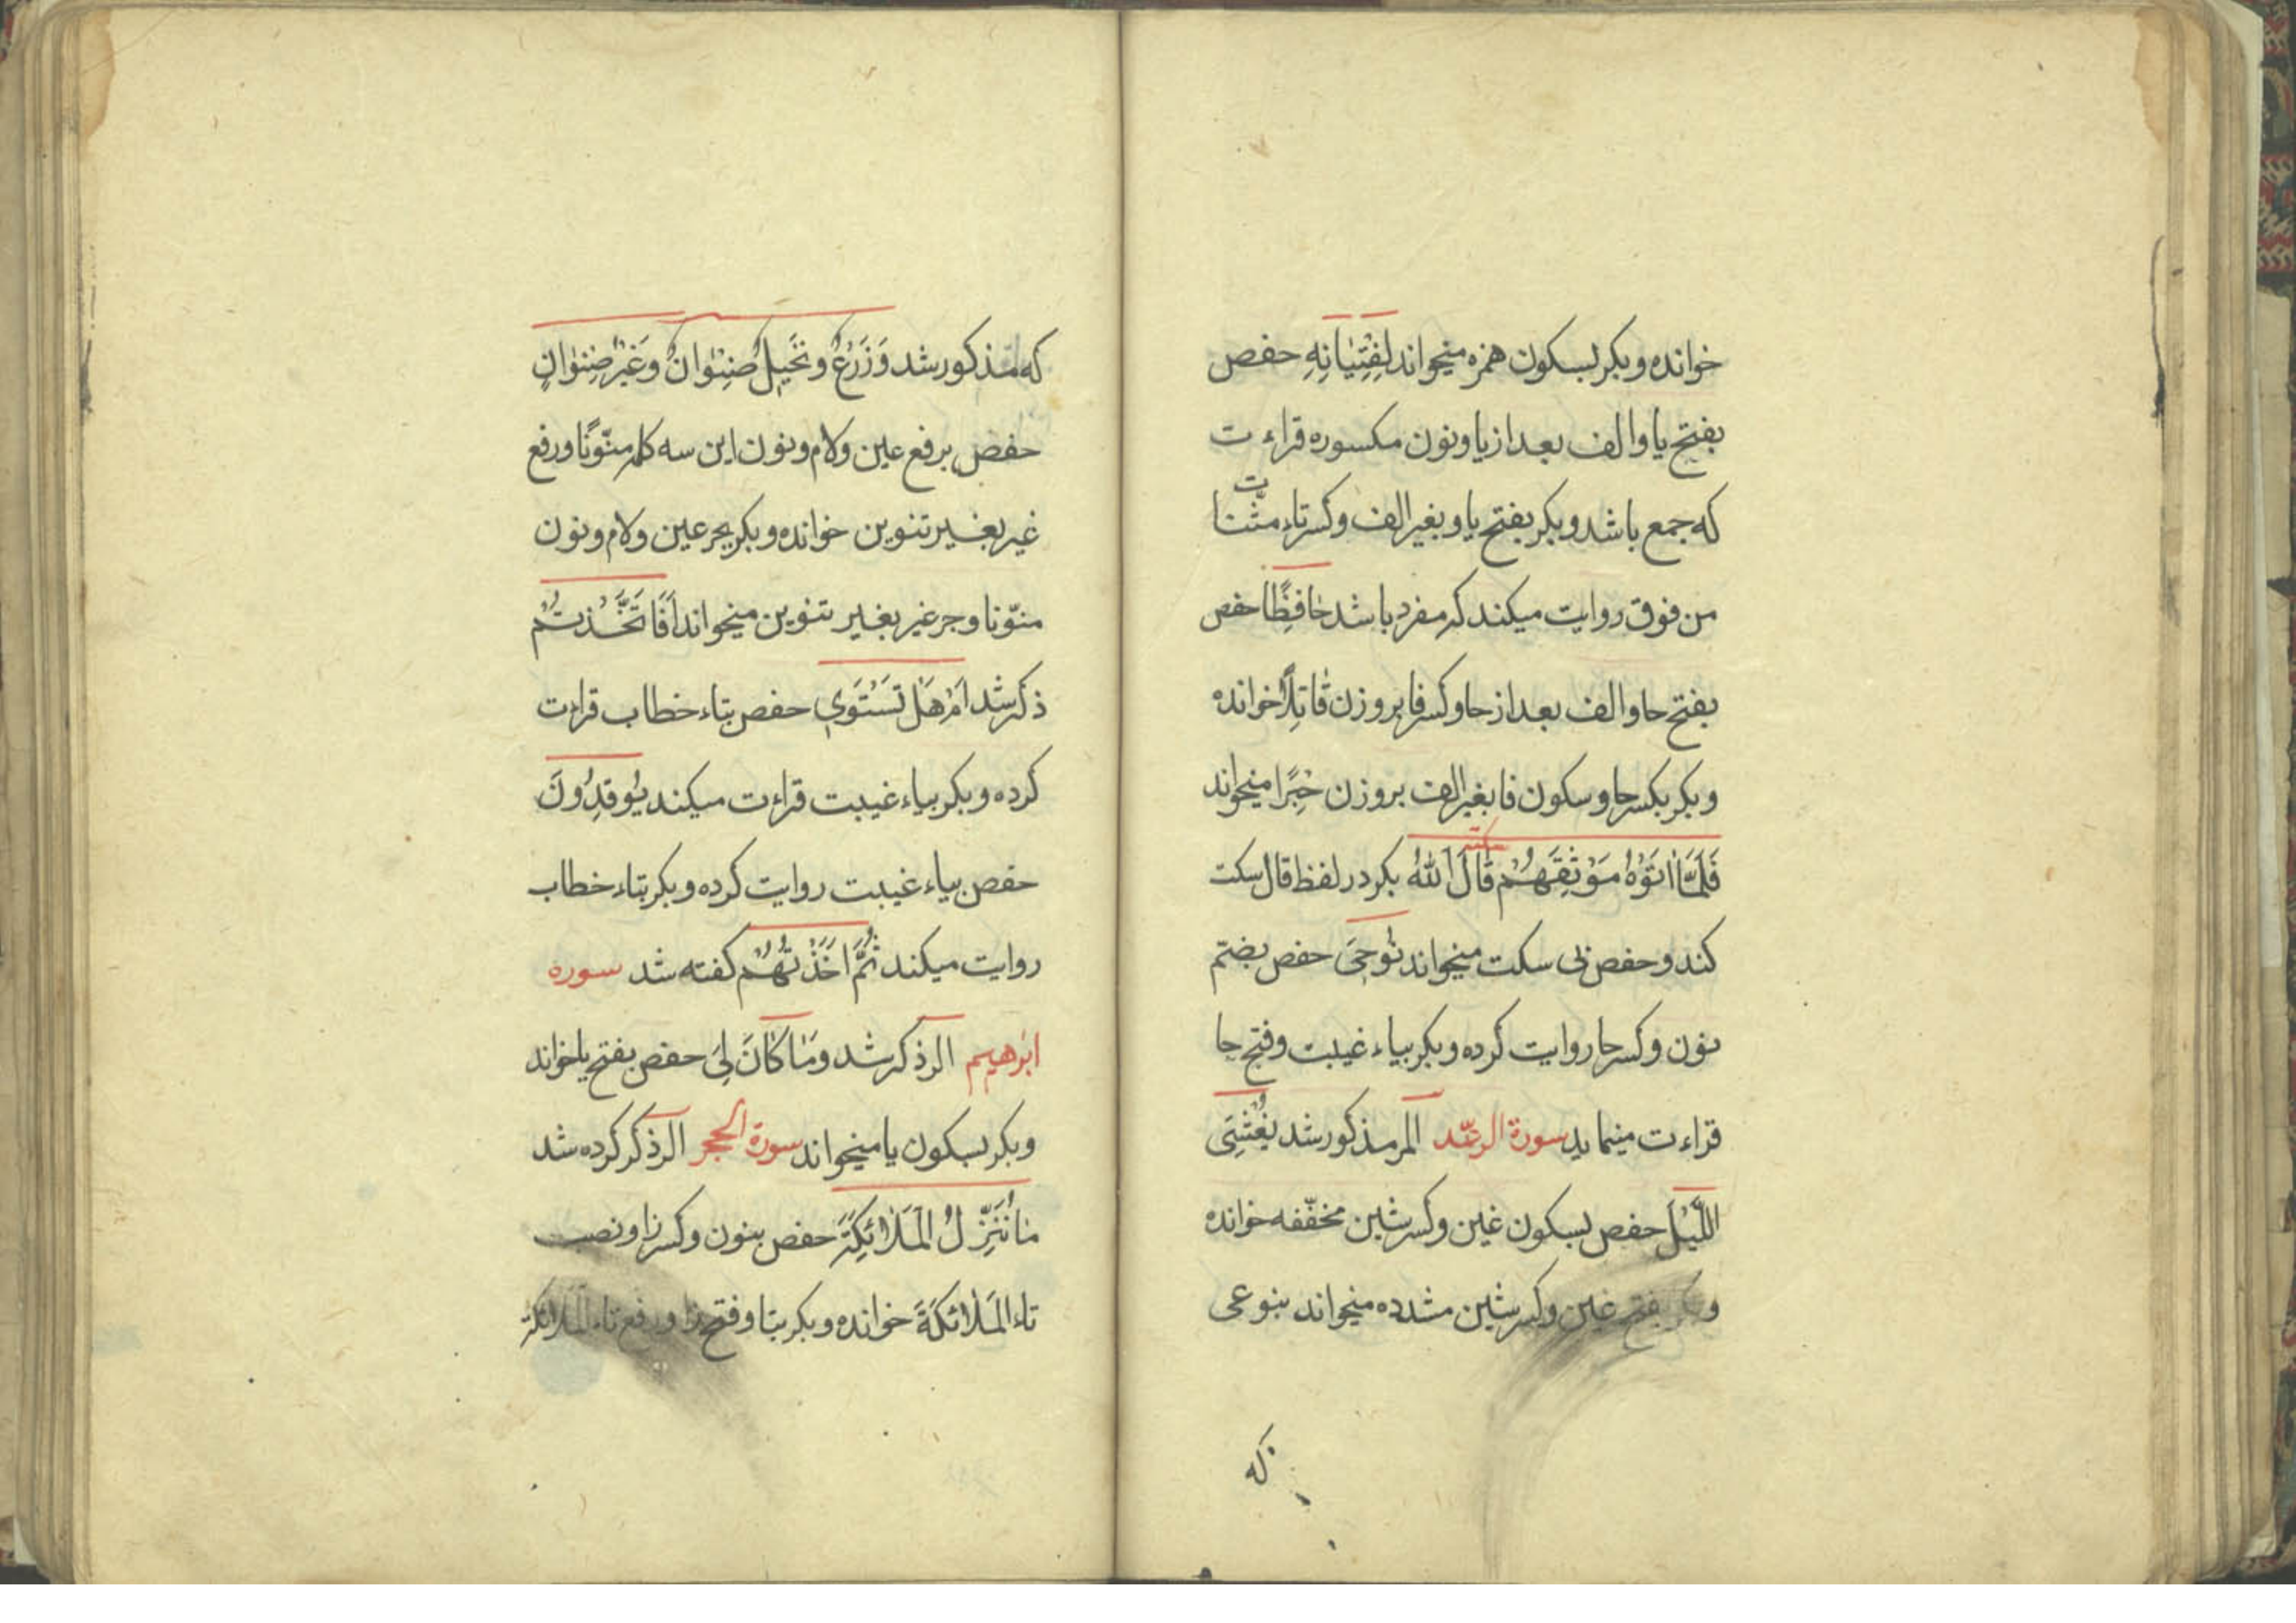 خوانده و بکر بسکون همزه میخواند لِفِتْیٰانِهِ حفص
بفتح یا و الف بعد از یا و نون مکسوره قراءت
که جمع باشد و بکر بفتح یا و بغیر الف و کسر تاء مثنات
من فوق روایت میکند که مفرد باشد حٰافِظًا حفص
بفتح حا و الف بعد از حا و کسر فا بر وزن قٰاتِلًا خوانده
و بکر بکسر حا و سکون فا بغیر الف بر وزن حِبْرًا میخواند
سکته
فَلَمَّٰا اٰتَوْهُ مَوْثِقَهُمْ قٰالَ اللّٰهُ بکر در لفظ قال سکت
کند و حفص بی سکت میخواند نُوحِیَ حفص بضم
نون و کسر حا روایت کرده و بکر بیاء غیبت و فتح حا
قراءت مینماید سورة الرعد المر مذکور شد یُغْشِیَ
اللَّیْلَ حفص بسکون غین و کسر شین مخفّفه خوانده
و بکر بفتح غین و کسر شین مشدده میخواند بنوعی
که
که مذکور شد وَ زَرْعٌ و نَخِیلٌ صِنْوٰانٌ وَ غَیْرُ صِنْوٰانٍ
حفص برفع عین و لام و نون این سه کلمه منوّنًا و رفع
غیر بغیر تنوین خوانده و بکر بجر عین و لام و نون
منوّنا و جر غیر بغیر تنوین میخواند اَفَاتَّخَذْتُمْ
ذکر شد اَمْ هَلْ تَسْتَوِی حفص بتاء خطاب قراءت
کرده و بکر بیاء غیبت قراءت میکند یُوقِدُونَ
حفص بیاء غیبت روایت کرده و بکر بتاء خطاب
روایت میکند ثُمَّ اَخَذْتُهُمْ کفته شد سوره
ابرٰهیم الر ذکر شد و مٰا کٰانَ لِیَ حفص بفتح یا خواند
و بکر بسکون یا میخواند سورة الحجر الر ذکر کرده شد
مٰا نُنَزِّلُ الْمَلٰائِکَةَ حفص بنون و کسر زا و نصب
تاء الْمَلٰائکَةَ خوانده و بکر بتا و فتح زا و رفع تاء الْمَلٰائکة